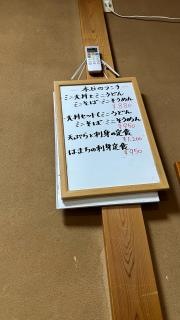 本日のランチ
ミニ天丼とミニうどん
ミニそば ミニそうめん
¥880
天丼セット(ミニうどん
ミニそば ミニそうめん
¥950
天ぷらと刺身の定食
¥1,200
はまちの刺身定食
¥950